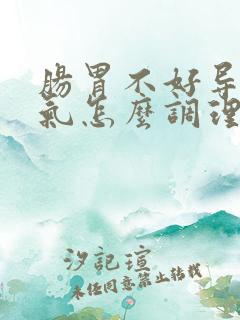 腸胃不好导
氣怎麼調理
汐記瑄
未任同意禁止转载